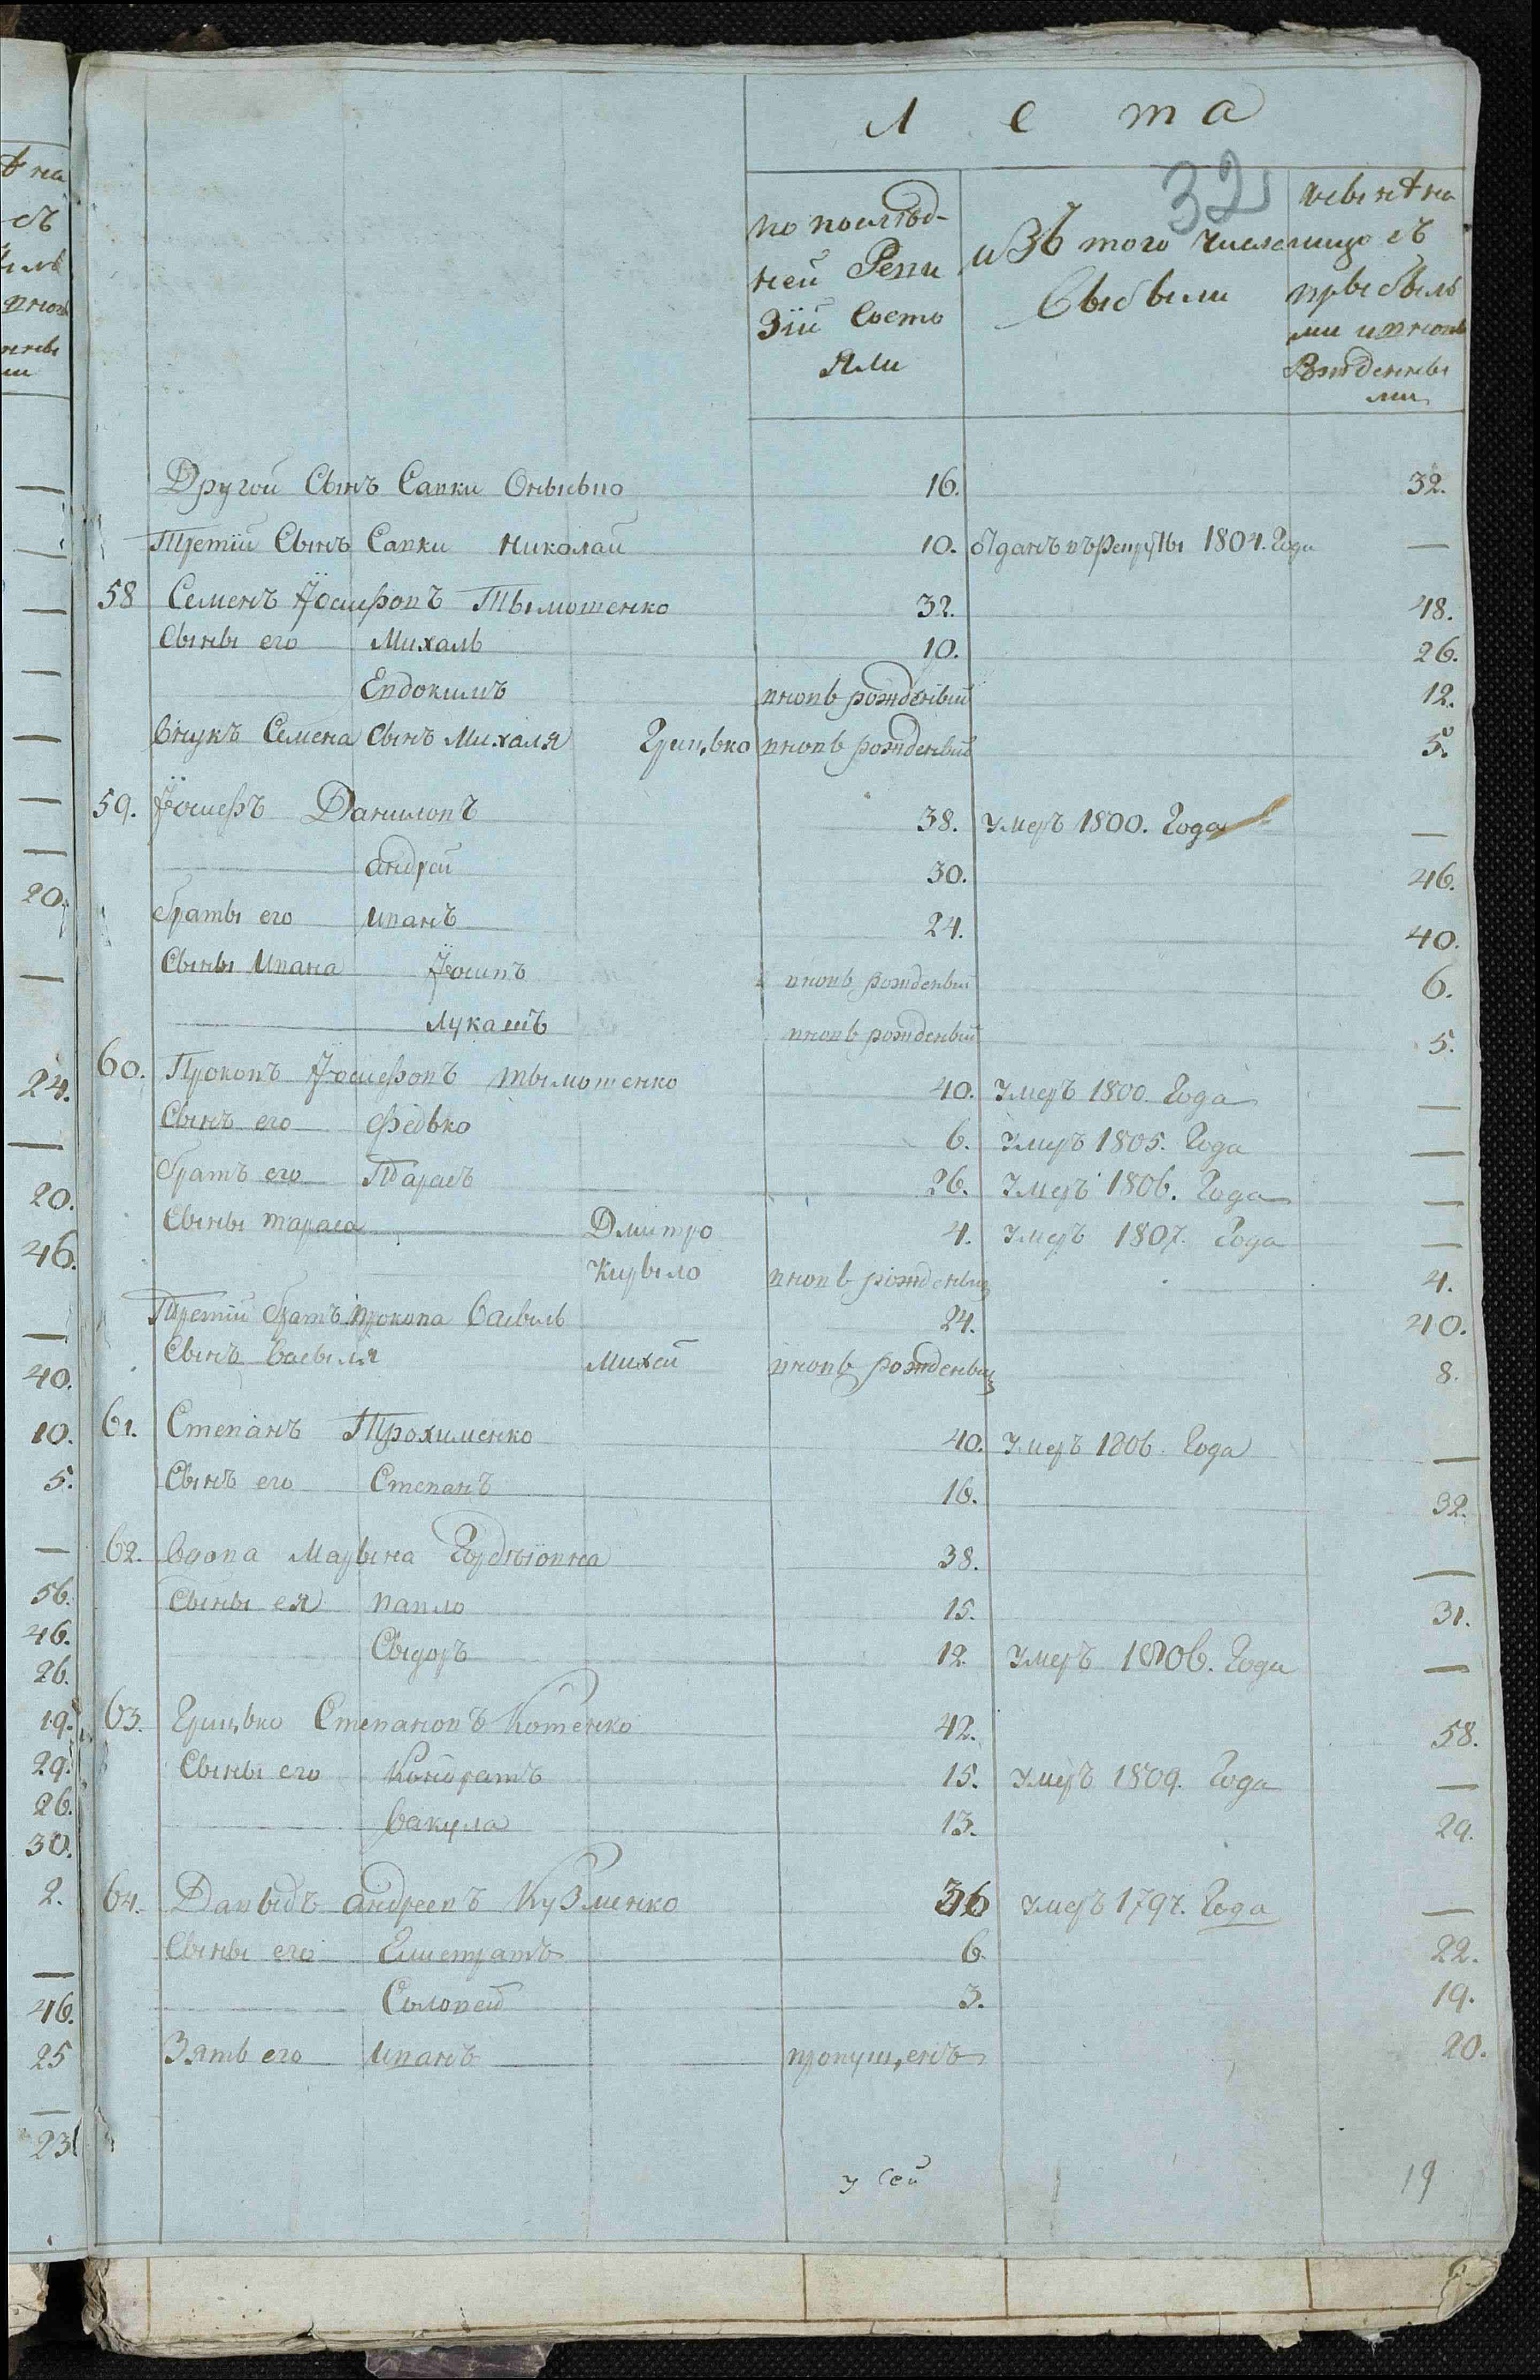 Лета
32
по послѣд-
ней Реви
зіи Состо
яли
изъ того числа
Выбыли
нынѣ на
лицо съ
прыбылы
ми и вновь
Рожденны
ми
Другой Сынъ Савки 16. 32.
Третій Сынъ Савки Николай 10. Отданъ въ Рекруты 1804. Года —
58 Семенъ Іосифовъ Тымошенко 32. 48.
Сыны его Михаль 10. 26.
Евдокимъ вновь рожденный 12.
Внукъ Семена Сынъ Михаля Грицько вновь рожденный 5.
59. Іосифъ Даниловъ 38. Умеръ 1800. Года —
Андрей 30. 46.
браты его Иванъ 24. 40.
Сыны Ивана Іосипъ вновь рожденный 6.
Лукашъ вновь рожденный 5.
60. Прокопъ Іосифовъ Тымошенко 40. Умеръ 1800. Года —
Сынъ его Федько 6. Умеръ 1805. Года —
братъ его Тарасъ 26. Умеръ 1806. Года —
Сыны Тараса Дмитро 4. Умеръ 1807. Года —
Кирыло вновь рожденый 4.
Третій братъ Прокопа Василь 24. 40.
Сынъ Васыля Михей вновь рожденый 8.
61. Степанъ Трохименко 40. Умеръ 1806. Года —
Сынъ его Степанъ 16. 32.
62. Вдова Марына 38. —
Сыны ея Павло 15. 31.
Сыдоръ 12. Умеръ 1806. Года —
63. Грицько Степановъ Котенко 42. 58.
Сыны его Кондратъ 15. Умеръ 1809. Года —
Вакула 13. 29.
64. Давыдъ Андреевъ Кузменко 36 Умеръ 1797. Года —
Сыны его Елистратъ 6. 22.
Соловей 3. 19.
Зять его Иванъ пропущенъ 20.
у Сей 19